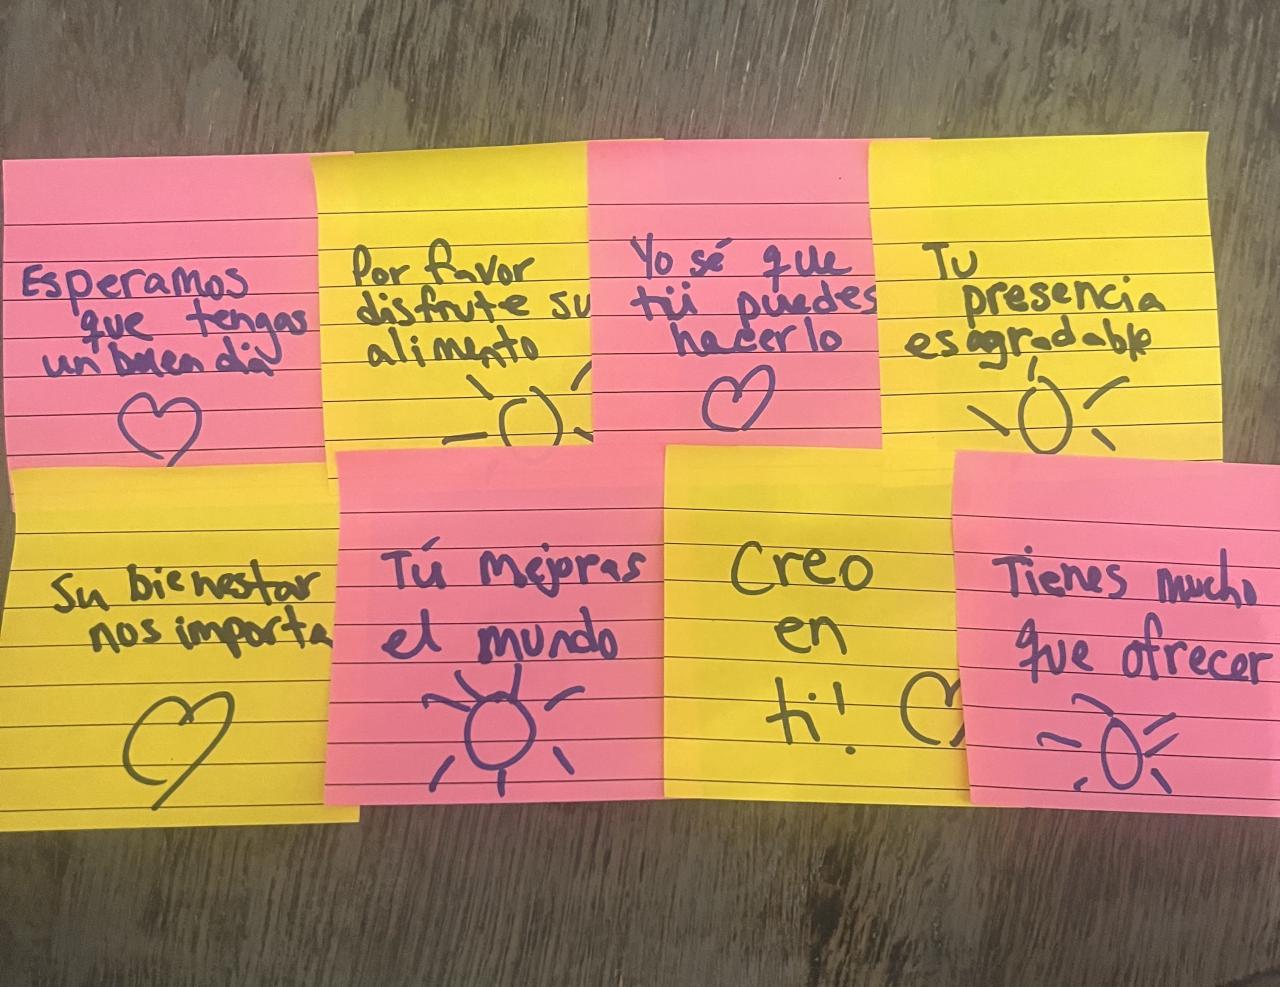 Esperamos
que tengas
un buen dia
Por favor
disfrute su
alimento
Yo sé que
tú puedes
hacerlo
Tu
presencia
es agradable
Su bienestar
nos importa
Tú mejoras
el mundo
Creo
en
ti!
Tienes mucho
que ofrecer